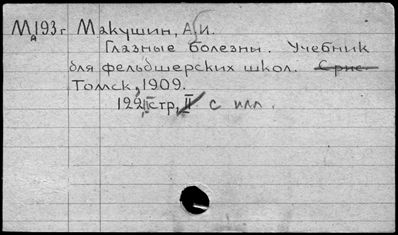 МА193г Макушин, А.И.
Глазные болезни. Учебник
для фельдшерских школ. С рис.
Томск, 1909.
122, II стр, II с илл.